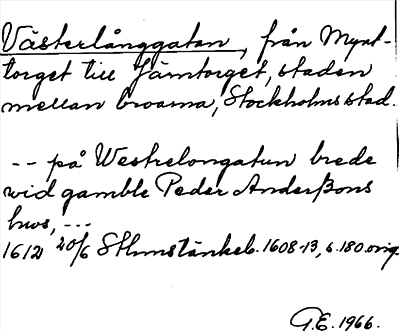 Västerlånggatan, från Mynt-
torget till Järntorget, staden
mellan broarna, Stockholms stad.
-- på Westrelongatun brede
wid gamble Peder Anderßons
hws, ---
1612 20/6 Sthms tänkeb. 1608-13, s. 180. orig.
G.E. 1966.